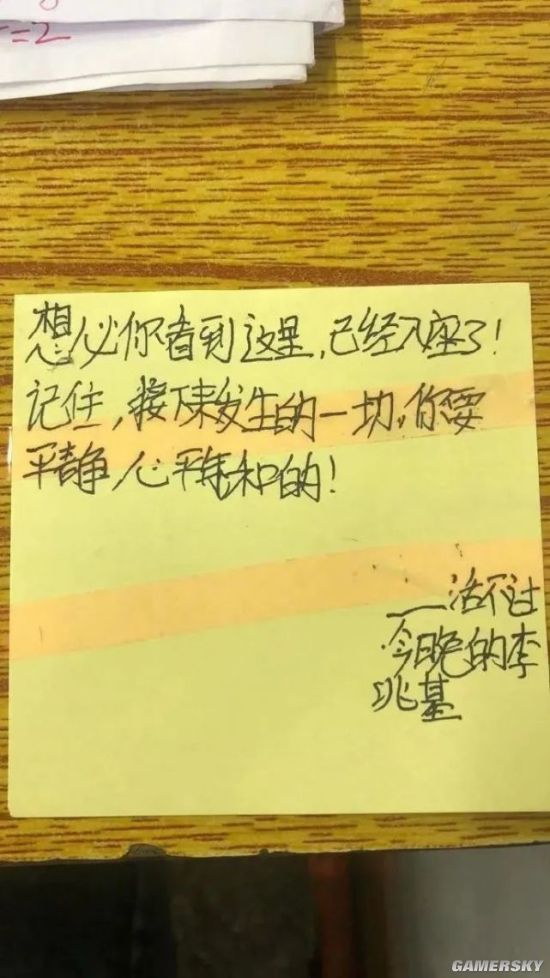 =2
想必你看到这里,已经入座了!
记住,接下来发生的一切,你要
平静 心平气和的!
——活不过
今晚的李
兆基
GAMERSKY